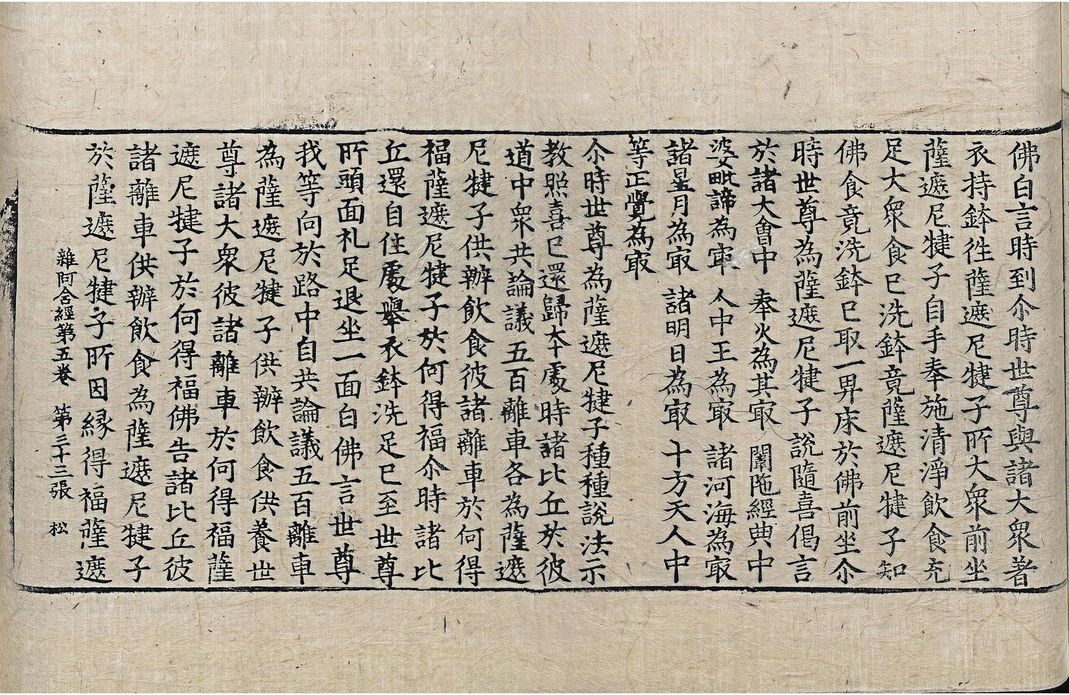 佛白言時到尒時世尊與諸大衆著
衣持鉢徃薩遮尼犍子所大衆前坐
薩遮尼犍子自手奉施清淨飲食充
足大衆食已洗鉢竟薩遮尼犍子知
佛食竟洗鉢已取一卑床於佛前坐尒
時世尊為薩遮尼犍子說隨喜偈言
於諸大會中 奉火為其㝡 闡陁經典中
婆毗諦為㝡 人中王為㝡 諸河海為㝡
諸星月為㝡 諸明日為㝡 十方天人中
等正覺為㝡
尒時世尊為薩遮尼犍子種種說法示
教照喜已還歸本處時諸比丘於彼
道中衆共論議五百離車各為薩遮
尼犍子供辦飲食彼諸離車於何得
福薩遮尼犍子於何得福尒時諸比
丘還自住處舉衣鉢洗足已至世尊
所頭面礼足退坐一面白佛言世尊
我等向於路中自共論議五百離車
為薩遮尼犍子供辦飲食供養世
尊諸大衆彼諸離車於何得福薩
遮尼犍子於何得福佛告諸比丘彼
諸離車供辦飲食為薩遮尼犍子
於薩遮尼犍子所因緣得福薩遮
雜阿含經第五卷 第三十三張 松